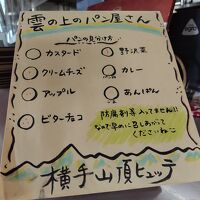 雲の上のパン屋さん
パンの見分け方
カスタード
クリームチーズ
アップル
ビターチョコ
野沢菜
カレー
あんぱん
防腐剤等入ってません!!
なので早めに召しあがって
くださいねっ
横手山頂ヒュッテ